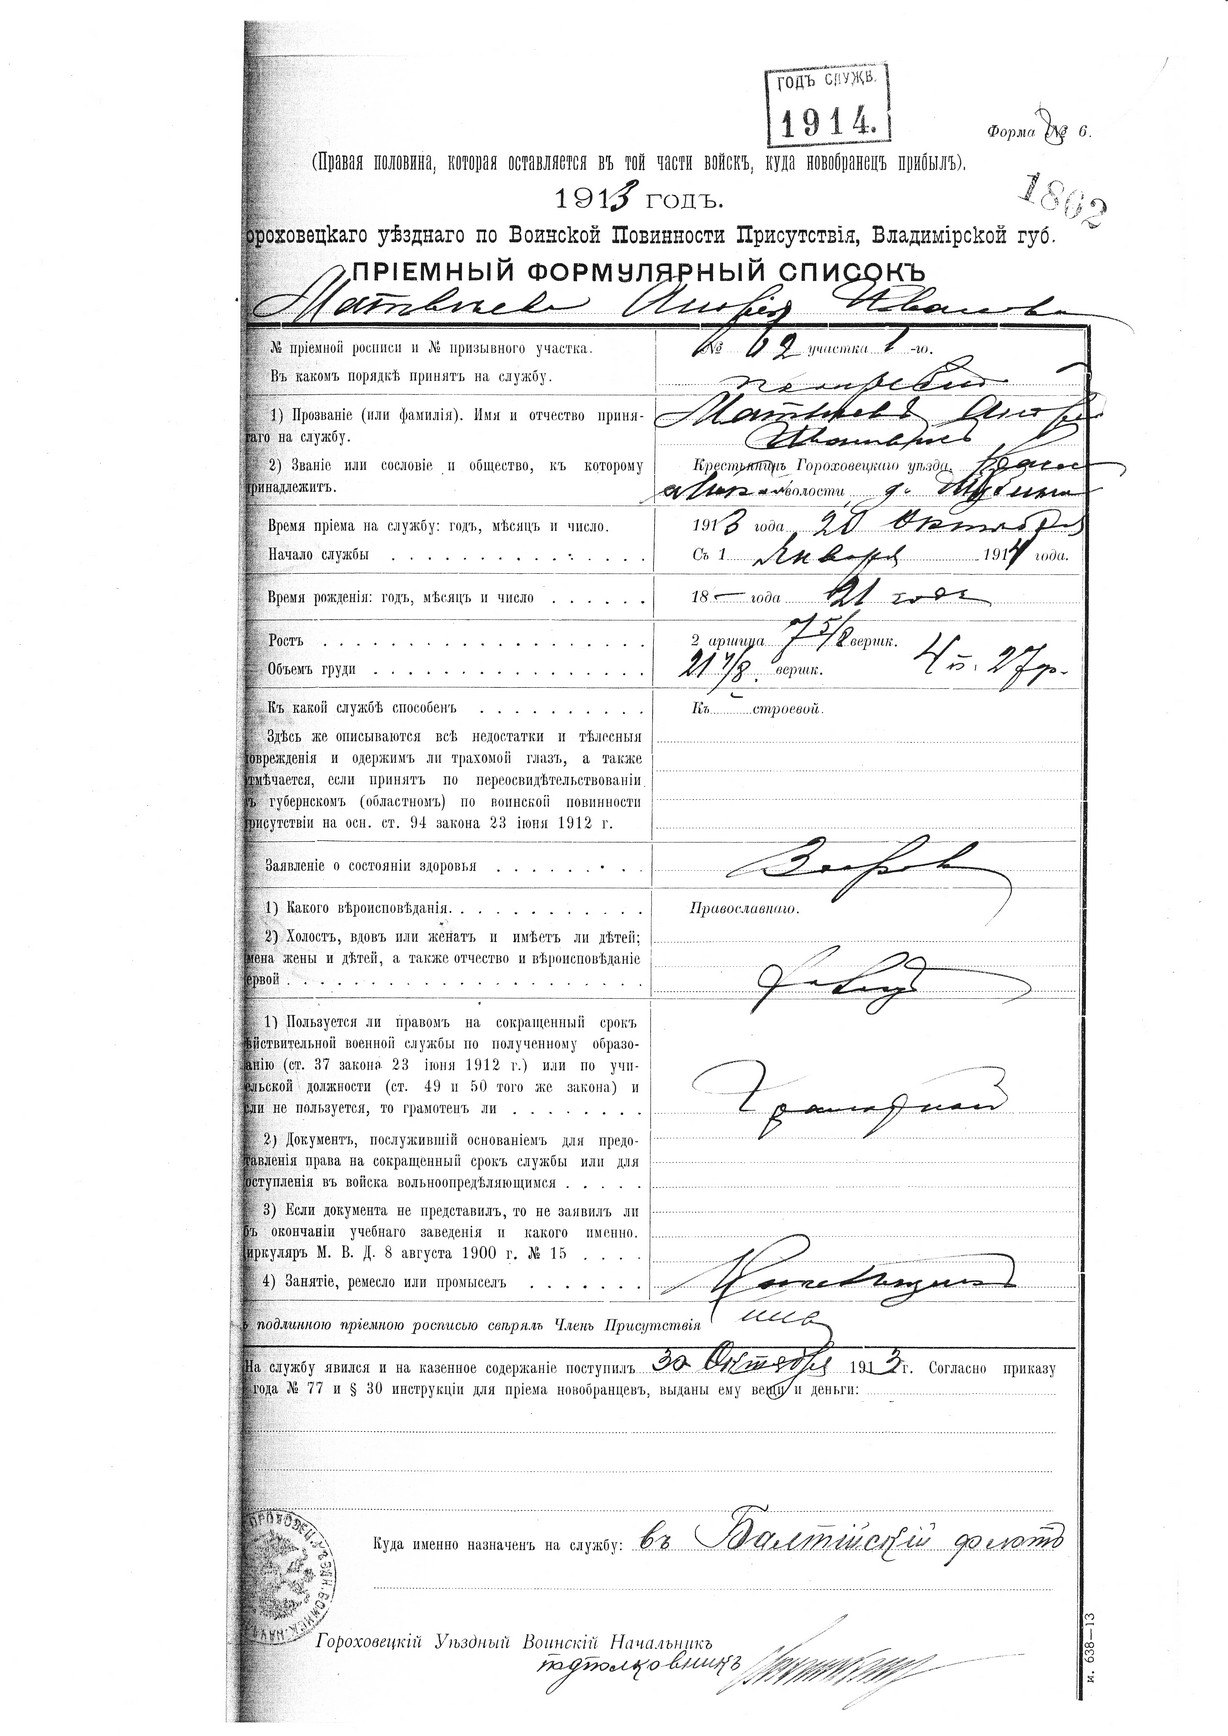 ГОДЪ СЛУЖБ.
1914.
Форма № 6.
(Правая половина, которая оставляется въ той части войскъ, куда новобранецъ прибылъ).
1913 годъ.
1862
ороховецкаго уѣзднаго по Воинской Повинности Присутствія, Владимірской губ.
ПРІЕМНЫЙ ФОРМУЛЯРНЫЙ СПИСОКЪ
Матвѣева Андрея Иванова
№ пріемной росписи и № призывного участка.
№ 62 участка 1-го.
Въ какомъ порядкѣ принятъ на службу.
по жребію
1) Прозваніе (или фамилія). Имя и отчество приня-
таго на службу.
Матвѣевъ Андрей
Ивановъ
2) Званіе или сословіе и общество, къ которому
принадлежитъ.
Крестьянинъ Гороховецкаго уѣзда,
волости, д.
Время пріема на службу: годъ, мѣсяцъ и число.
1913 года 20 Октября
Начало службы
Съ 1 Января 1914 года.
Время рожденія: годъ, мѣсяцъ и число
18 — года 21 года
Ростъ
2 аршина 7 5/8 вершк.
Объемъ груди
21 7/8 вершк.
4 п. 27 ф.
Къ какой службѣ способенъ
Къ строевой.
Здѣсь же описываются всѣ недостатки и тѣлесныя
поврежденія и одержимъ ли трахомой глазъ, а также
отмѣчается, если принятъ по переосвидѣтельствованіи
въ губернскомъ (областномъ) по воинской повинности
присутствіи на осн. ст. 94 закона 23 іюня 1912 г.
Заявленіе о состояніи здоровья
Здоровъ
1) Какого вѣроисповѣданія.
Православнаго.
2) Холостъ, вдовъ или женатъ и имѣетъ ли дѣтей;
имена жены и дѣтей, а также отчество и вѣроисповѣданіе
первой
1) Пользуется ли правомъ на сокращенный срокъ
дѣйствительной военной службы по полученному образо-
ванію (ст. 37 закона 23 іюня 1912 г.) или по учи-
тельской должности (ст. 49 и 50 того же закона) и
если не пользуется, то грамотенъ ли
Грамотный
2) Документъ, послужившій основаніемъ для предо-
ставленія права на сокращенный срокъ службы или для
поступленія въ войска вольноопредѣляющимся
3) Если документа не представилъ, то не заявилъ ли
объ окончаніи учебнаго заведенія и какого именно.
Циркуляръ М. В. Д. 8 августа 1900 г. № 15
4) Занятіе, ремесло или промыселъ
подлинною пріемною росписью свѣрялъ Членъ Присутствія
На службу явился и на казенное содержаніе поступилъ 30 Октября 1913 г. Согласно приказу
года № 77 и § 30 инструкціи для пріема новобранцевъ, выданы ему вещи и деньги:
Куда именно назначенъ на службу: въ Балтійскій флотъ
Гороховецкій Уѣздный Воинскій Начальникъ
подполковникъ
и. 638—13